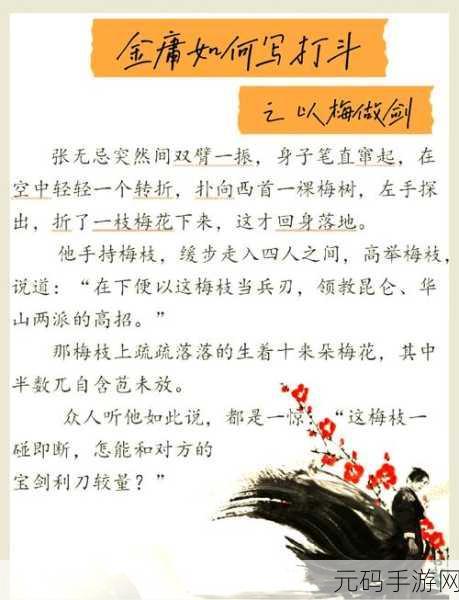 金庸如何写打斗
之以梅做剑
张无忌突然间双臂一振，身子笔直窜起，在
空中轻轻一个转折，扑向西首一棵梅树，左手探
出，折了一枝梅花下来，这才回身落地。
他手持梅枝，缓步走入四人之间，高举梅枝，
说道：“在下便以这梅枝当兵刃，领教昆仑、华
山两派的高招。”
那梅枝上疏疏落落的生着十来朵梅花，其中
半数兀自含苞未放。
众人听他如此说，都是一惊：“这梅枝一
碰即断，怎能和对方的
宝剑利刀较量？”
元码手游网